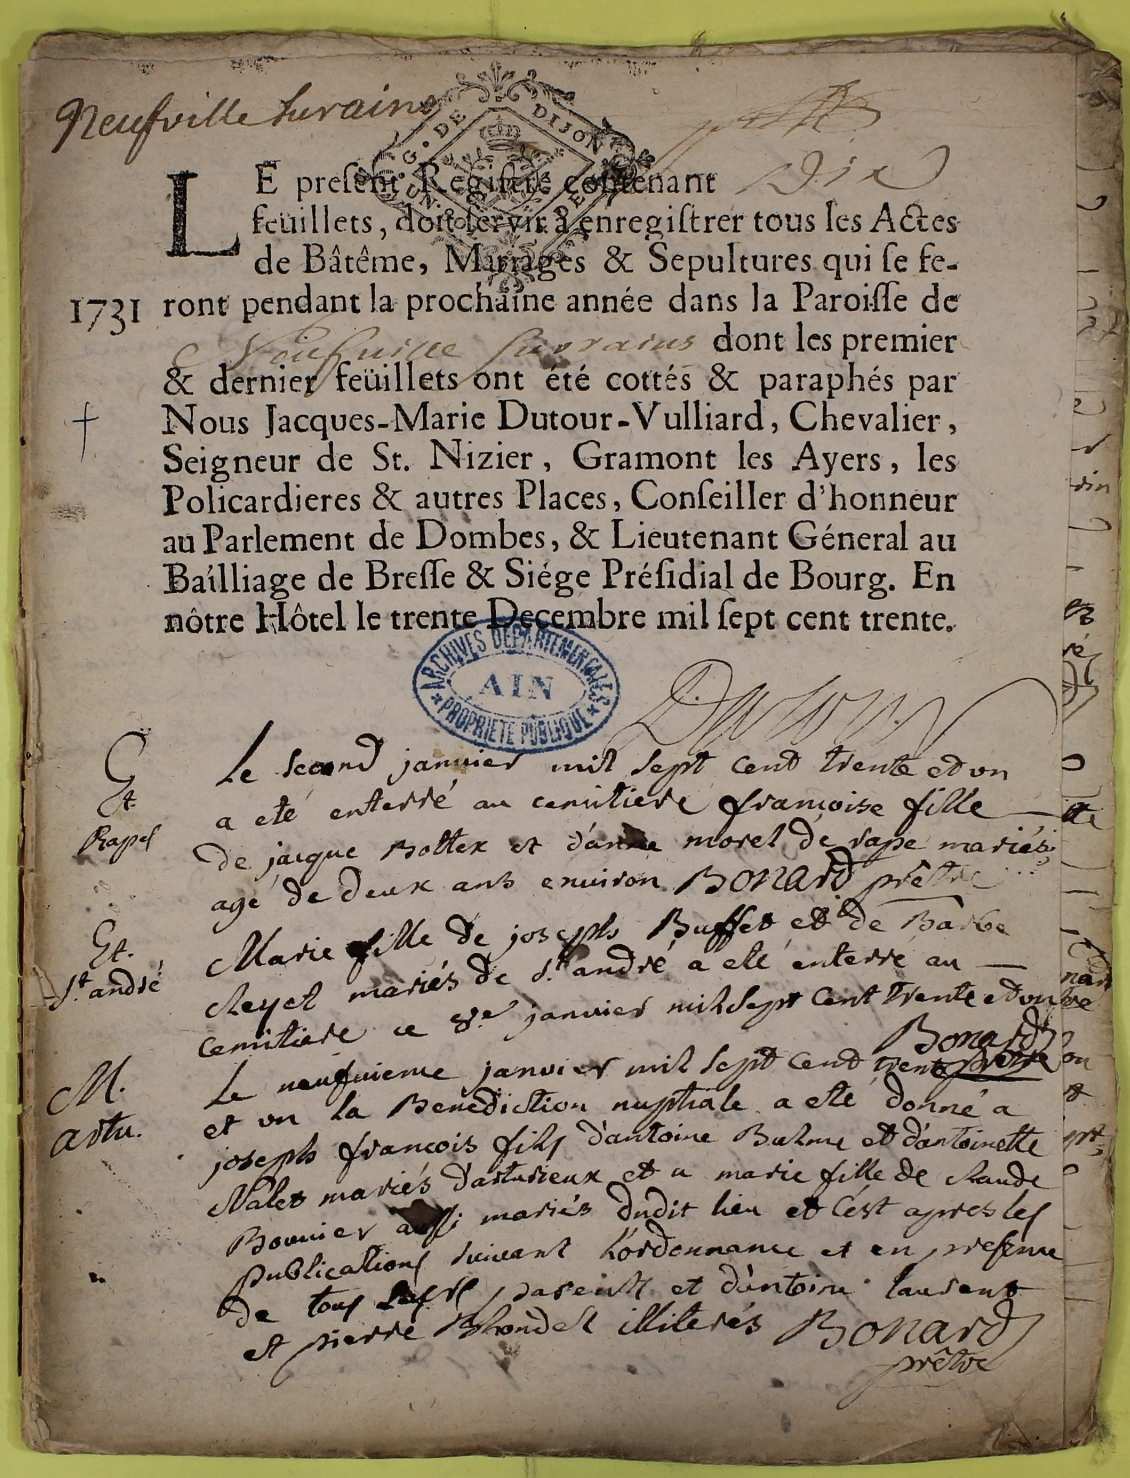 Neufville surains
G. DE DIJON
LE presént Registre contenant Dix
feüillets, doit servir à enregistrer tous les Actes
de Bâtême, Mariages & Sepultures qui se fe-
1731 ront pendant la prochaine année dans la Paroisse de
Neufville surrains dont les premier
& dernier feüillets ont été cottés & paraphés par
Nous Jacques-Marie Dutour-Vulliard, Chevalier,
Seigneur de St. Nizier, Gramont les Ayers, les
Policardieres & autres Places, Conseiller d'honneur
au Parlement de Dombes, & Lieutenant Géneral au
Bailliage de Bresse & Siége Présidial de Bourg. En
nôtre Hôtel le trente Decembre mil sept cent trente.
ARCHIVES DÉPARTEMENTALES
AIN
PROPRIÉTÉ PUBLIQUE
Le second janvier mil sept cent trente et un
a eté enterré au cemitiere françoise fille
Rapes
de jacque Bottex et d'anne morel de rape mariés
agé de deux ans environ Bonard prêtre
Et.
Marie fille de joseph Buffet et de Barbe
St. andré
mariés de St. andré a eté enterré au
cemitiere ce 8.e janvier mil sept cent trente et un
Bonard prêtre
M.
Le neufvieme janvier mil sept cent trente
artu.
et un la Benediction nuptiale a eté donné a
joseph françois fils d'antoine et d'antoinette
mariés d'arturieux et a marie fille de Claude
Bouvier aussi mariés dudit lieu et c'est apres les
publications suivant l'ordonnance et en presence
de tous parents et d'antoine laurent
et pierre illiterés Bonard
prêtre